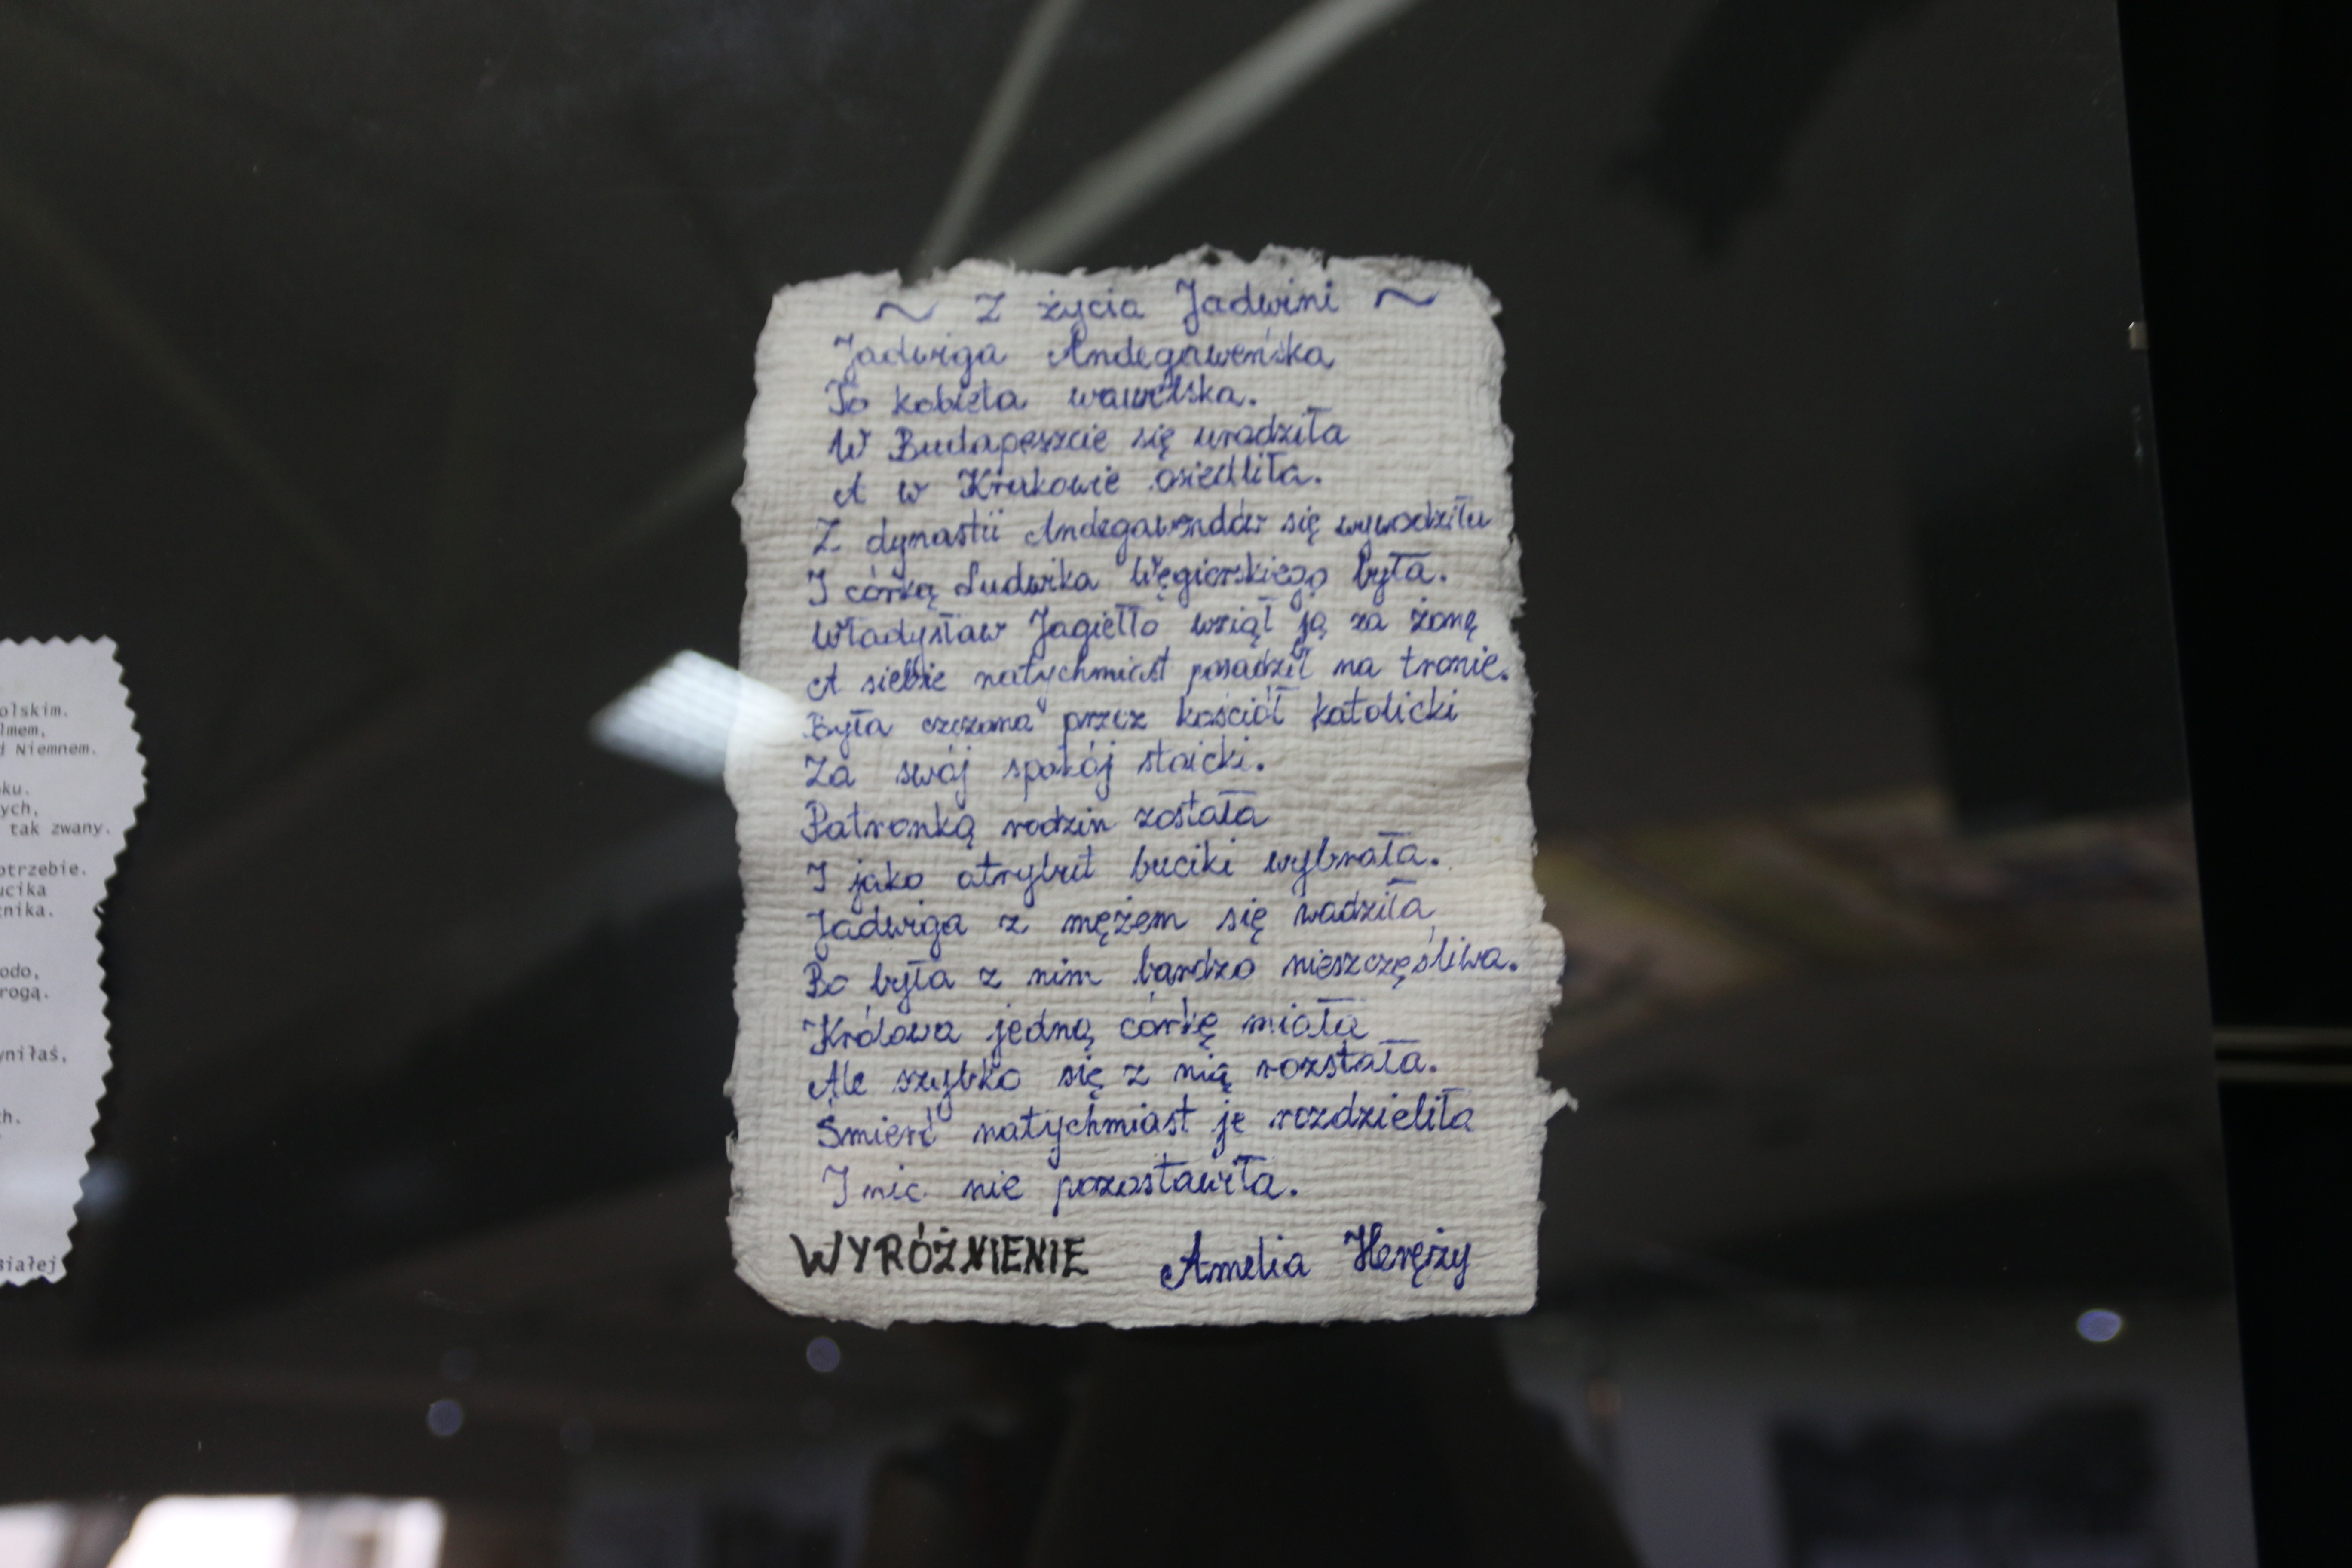 olskim.
lmem,
d Niemnem.
ku.
ych,
tak zwany.
otrzebie.
ucika
nika.
odo,
rogą.
yniłaś,
h.
Białej
~ Z życia Jadwini ~
Jadwiga Andegaweńska
To kobieta wawelska.
W Budapeszcie się urodziła
A w Krakowie osiedliła.
Z dynastii Andegawenów się wywodziła
I córką Ludwika Węgierskiego była.
Władysław Jagiełło wziął ją za żonę
A siebie natychmiast posadził na tronie.
Była czczona przez kościół katolicki
Za swój spokój stoicki.
Patronką rodzin została
I jako atrybut buciki wybrała.
Jadwiga z mężem się wadziła
Bo była z nim bardzo nieszczęśliwa.
Królowa jedną córkę miała
Ale szybko się z nią rozstała.
Śmierć natychmiast je rozdzieliła
I nic nie pozostawiła.
WYRÓŻNIENIE Amelia